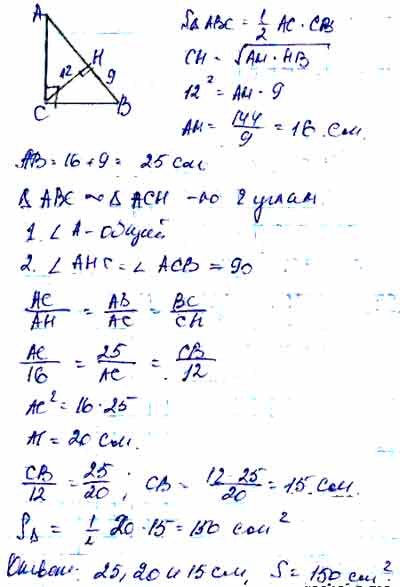 A
S∆ ABC = 1/2 AC · CB
CH = √AH · HB
H
12
9
12² = AH · 9
C
B
AH = 144/9 = 16 см.
AB = 16 + 9 = 25 см
∆ ABC ∾ ∆ ACH - по 2 углам.
1. ∠ A - общий
2. ∠ AHC = ∠ ACB = 90
AC/AH = AB/AC = BC/CH
AC/16 = 25/AC = CB/12
AC² = 16 · 25
AC = 20 см.
CB/12 = 25/20 ; CB = 12 · 25/20 = 15 см.
S∆ = 1/2 20 · 15 = 150 см²
Ответ: 25, 20 и 15 см, S = 150 см².